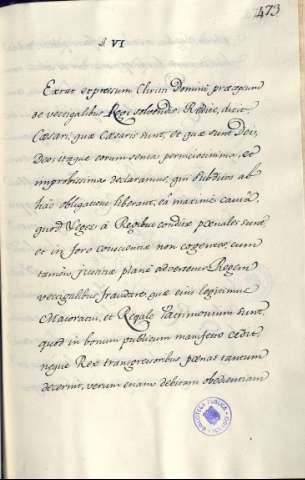 473
§ VI
Extat expressum Christi Domini præceptum
de vectigalibus Regi solvendis: Reddite, dicit,
Cæsari, quæ Cæsaris sunt, et quæ sunt Dei,
Deo: itaque eorum sensa perniciosissima, et
improbissima declaramus, qui subditos ab
hac obligatione liberant, ea maxime causâ,
quod Leges à Regibus conditæ pœnales sunt,
et in foro conscientiæ non cogentes, cum
tamen justitiæ plane adversetur Regem
vectigalibus fraudare, quæ ejus legitimus
Majoratus, et Regale Patrimonium sunt,
quod in bonum publicum manifesto cedit,
neque Rex transgressoribus pœnas tantum
decernit, verum etiam debitam obedientiam
BIBLIOTECA PUBLICA